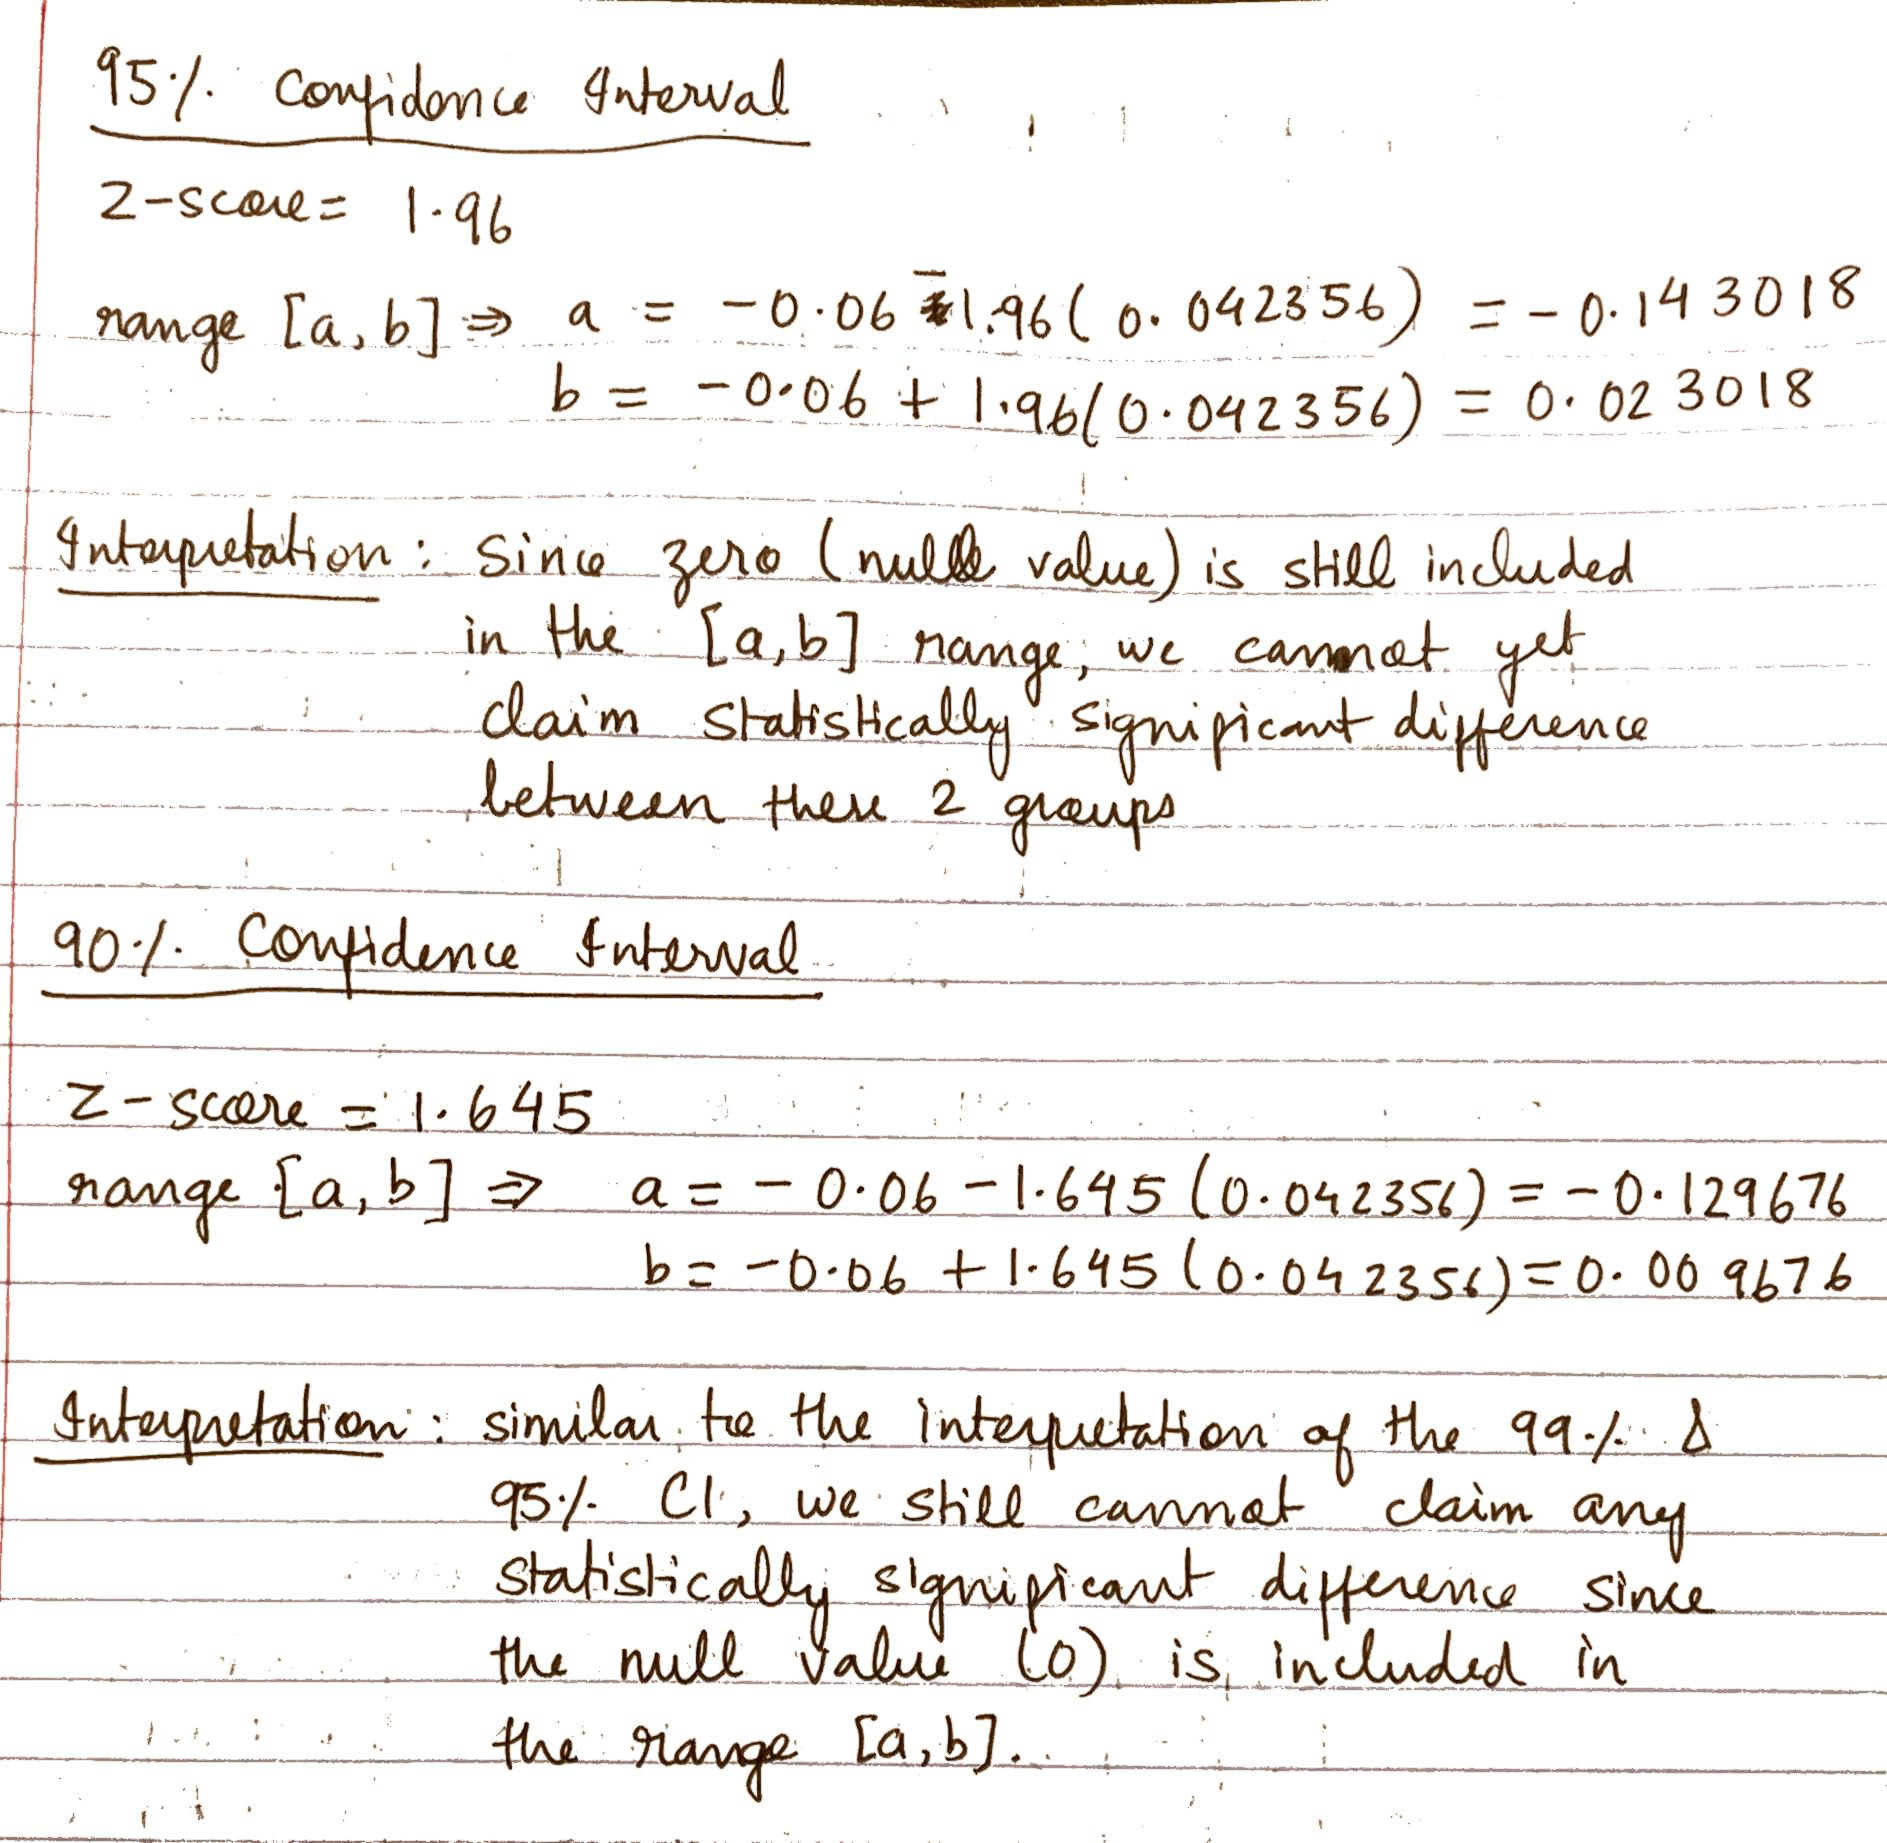 95% Confidence Interval
Z-score = 1.96
range [a, b] ⇒ a = -0.06 - 1.96(0.042356) = -0.143018
b = -0.06 + 1.96(0.042356) = 0.023018
Interpretation : Since zero (null value) is still included
in the [a,b] range, we cannot yet
claim statistically significant difference
between these 2 groups
90% Confidence Interval
Z-score = 1.645
range [a, b] ⇒ a = -0.06 -1.645 (0.042356) = -0.129676
b = -0.06 + 1.645 (0.042356) = 0.009676
Interpretation : similar to the interpretation of the 99% &
95% CI, we still cannot claim any
statistically significant difference since
the null value (0) is included in
the range [a,b].